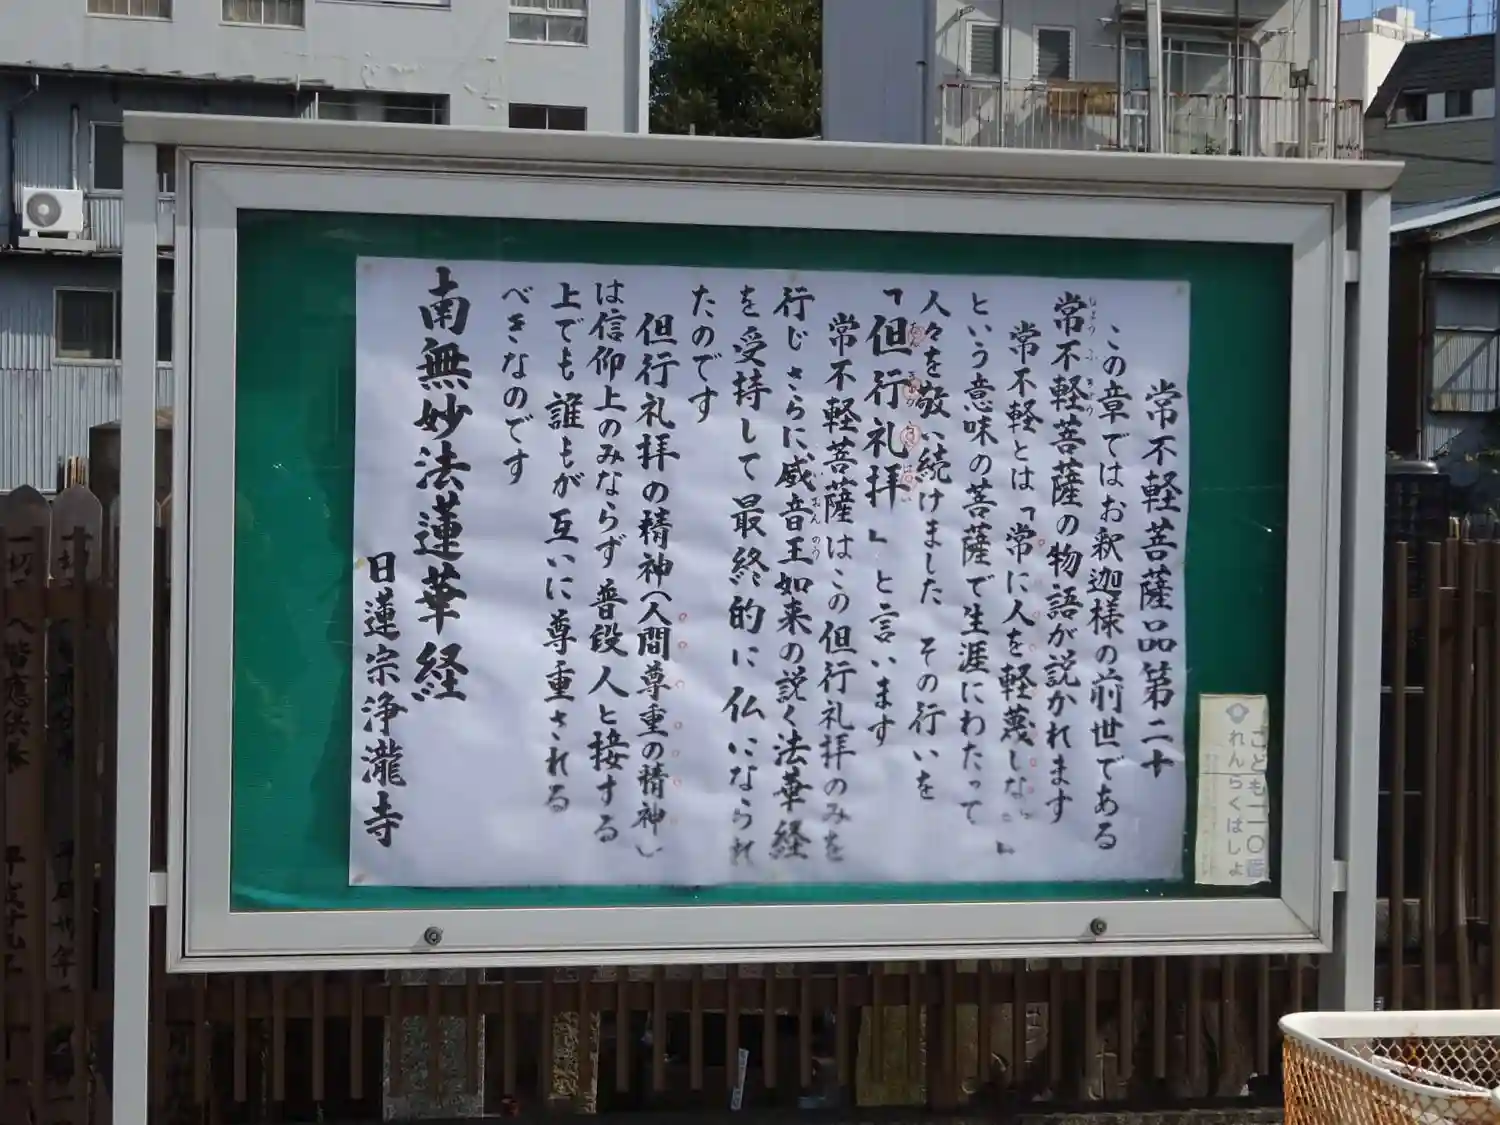 常不軽菩薩品第二十
この章ではお釈迦様の前世である
常不軽菩薩の物語が説かれます
じょうふきょう
常不軽とは「常に人を軽蔑しない」
という意味の菩薩で生涯にわたって
人々を敬い続けました その行いを
「但行礼拝」と言います
たんぎょうらいはい
常不軽菩薩はこの但行礼拝のみを
行じさらに威音王如来の説く法華経
おんのう
を受持して最終的に仏になられ
たのです
但行礼拝の精神(人間尊重の精神)
は信仰上のみならず普段人と接する
上でも誰もが互いに尊重される
べきなのです
南無妙法蓮華経
日蓮宗浄瀧寺
こども一一〇番
れんらくばしょ